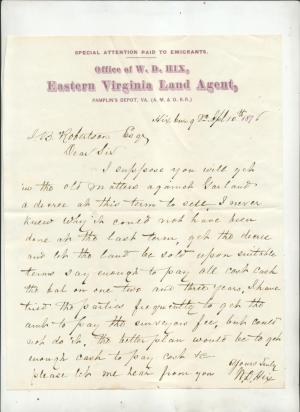 SPECIAL ATTENTION PAID TO EMIGRANTS.
Office of W. D. HIX,
Eastern Virginia Land Agent,
PAMPLIN'S DEPOT, VA. (A. M. & O. R.R.)
Hixburg Va Sept 10th 1876
Robertson Esq,
Dear Sir
I suppose you will get
in the old matters against Garland
a decree at this term to sell, I never
knew why it could not have been
done at the last term, get the decree
and let the land be sold upon suitable
terms say enough to pay all cost cash
the bal on one two and three years, I have
tried the parties frequently to get the
amt to pay the surveyors fee, but could
not do it. the better plan would be to get
enough cash to pay cost &c
please let me hear from you
Yours truly
W. D. Hix